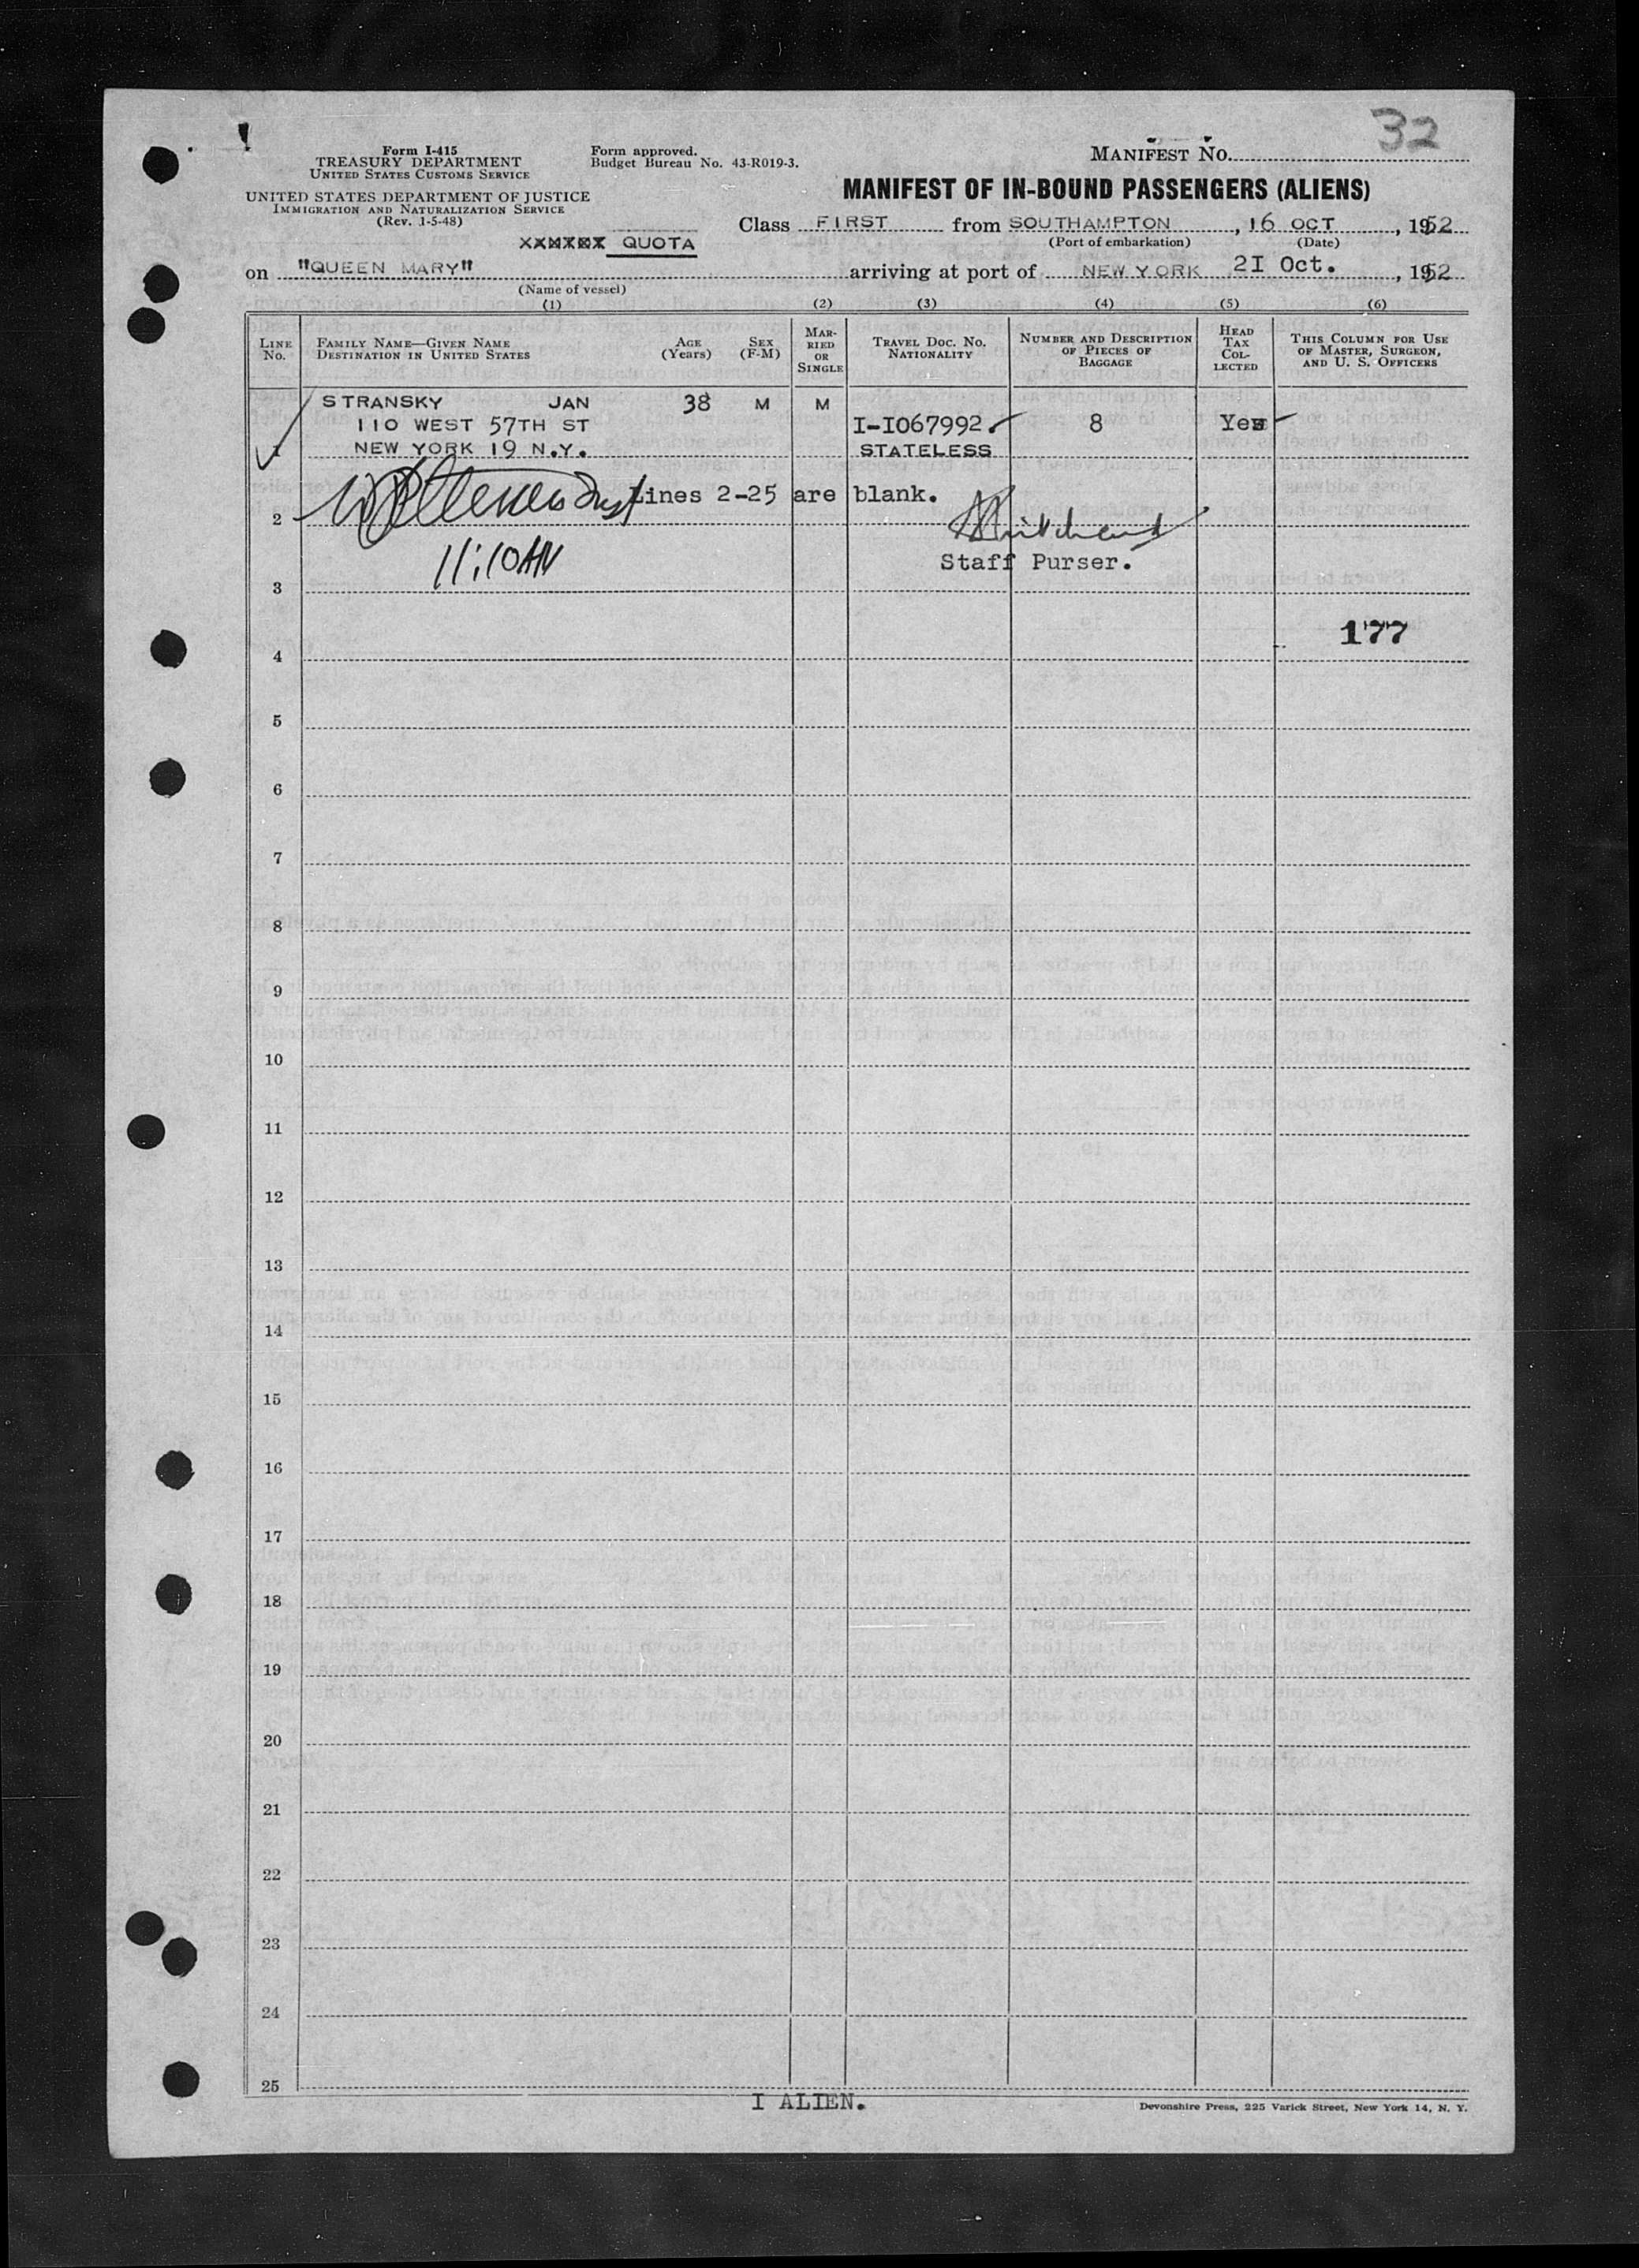 32
Form I-415
TREASURY DEPARTMENT
UNITED STATES CUSTOMS SERVICE
Form approved.
Budget Bureau No. 43-R019-3.
MANIFEST NO.
UNITED STATES DEPARTMENT OF JUSTICE
IMMIGRATION AND NATURALIZATION SERVICE
(Rev. 1-5-48)
MANIFEST OF IN-BOUND PASSENGERS (ALIENS)
Class FIRST from SOUTHAMPTON, 16 OCT, 1952
(Port of embarkation) (Date)
QUOTA
on "QUEEN MARY" arriving at port of NEW YORK 2I Oct., 1952
(Name of vessel)
(1) (2) (3) (4) (5) (6)
LINE No. FAMILY NAME—GIVEN NAME DESTINATION IN UNITED STATES AGE (Years) SEX (F-M) MARRIED OR SINGLE TRAVEL DOC. NO. NATIONALITY NUMBER AND DESCRIPTION OF PIECES OF BAGGAGE HEAD TAX COLLECTED THIS COLUMN FOR USE OF MASTER, SURGEON, AND U. S. OFFICERS
STRANSKY JAN 38 M M
110 WEST 57TH ST I-I067992 8 Yes
1 NEW YORK 19 N.Y. STATELESS
Lines 2-25 are blank.
2
11:10AM Staff Purser.
3
177
4
5
6
7
8
9
10
11
12
13
14
15
16
17
18
19
20
21
22
23
24
25
I ALIEN.
Devonshire Press, 225 Varick Street, New York 14, N. Y.